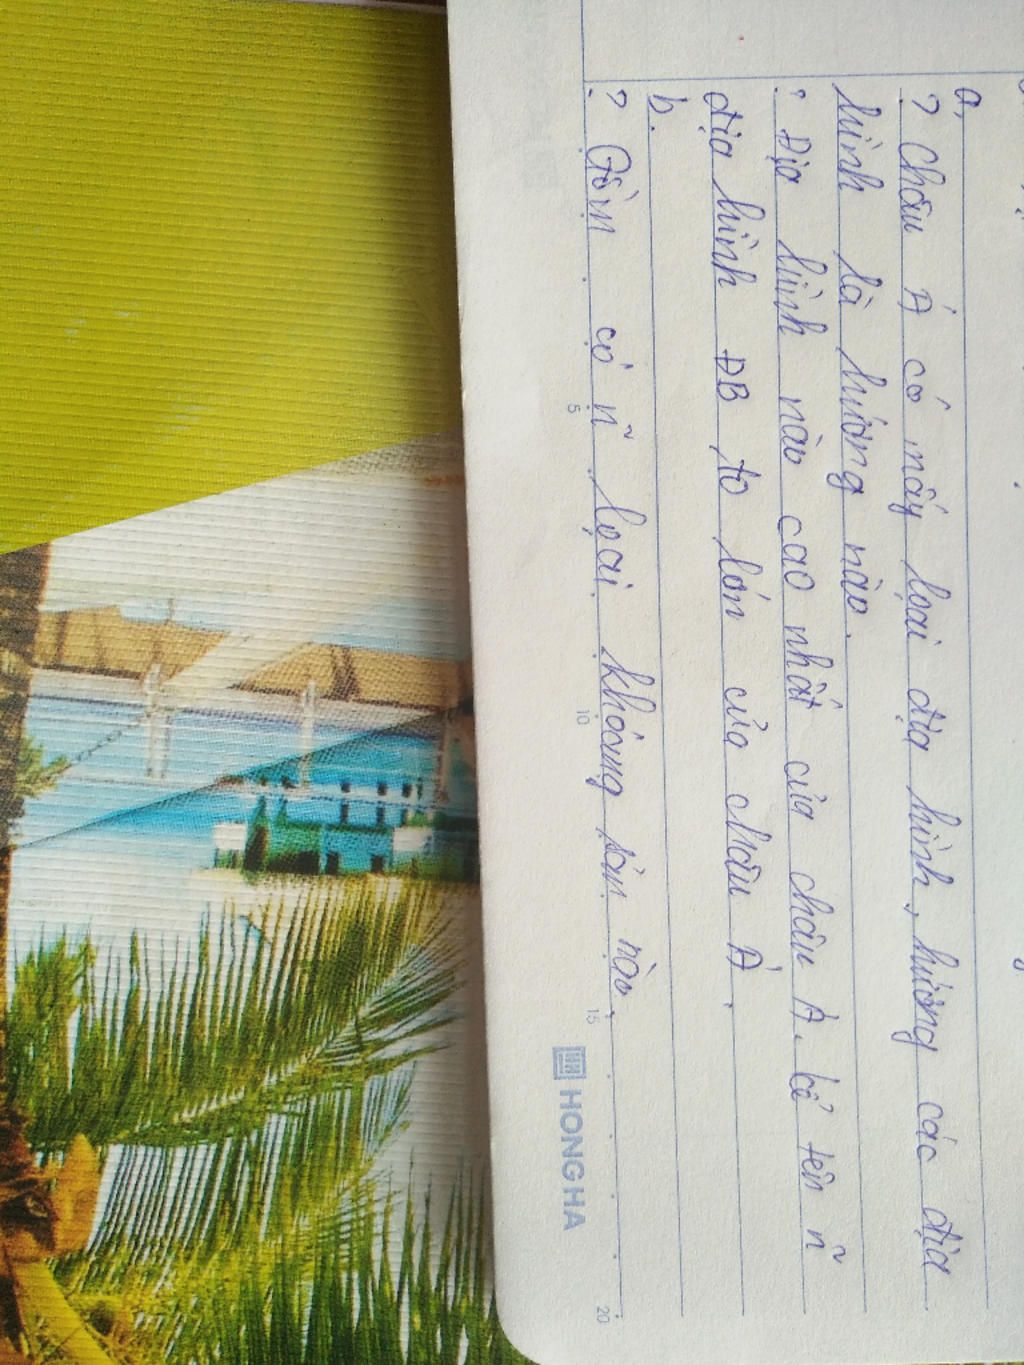 a,
? Châu Á có mấy loại địa hình, hướng các địa
hình là hướng nào.
? Địa hình nào cao nhất của châu Á. Kể tên ñ
địa hình ĐB to lớn của châu Á.
b.
? Gồm có ñ loại khoáng sản nào.
5
10
15
20
HONG HA